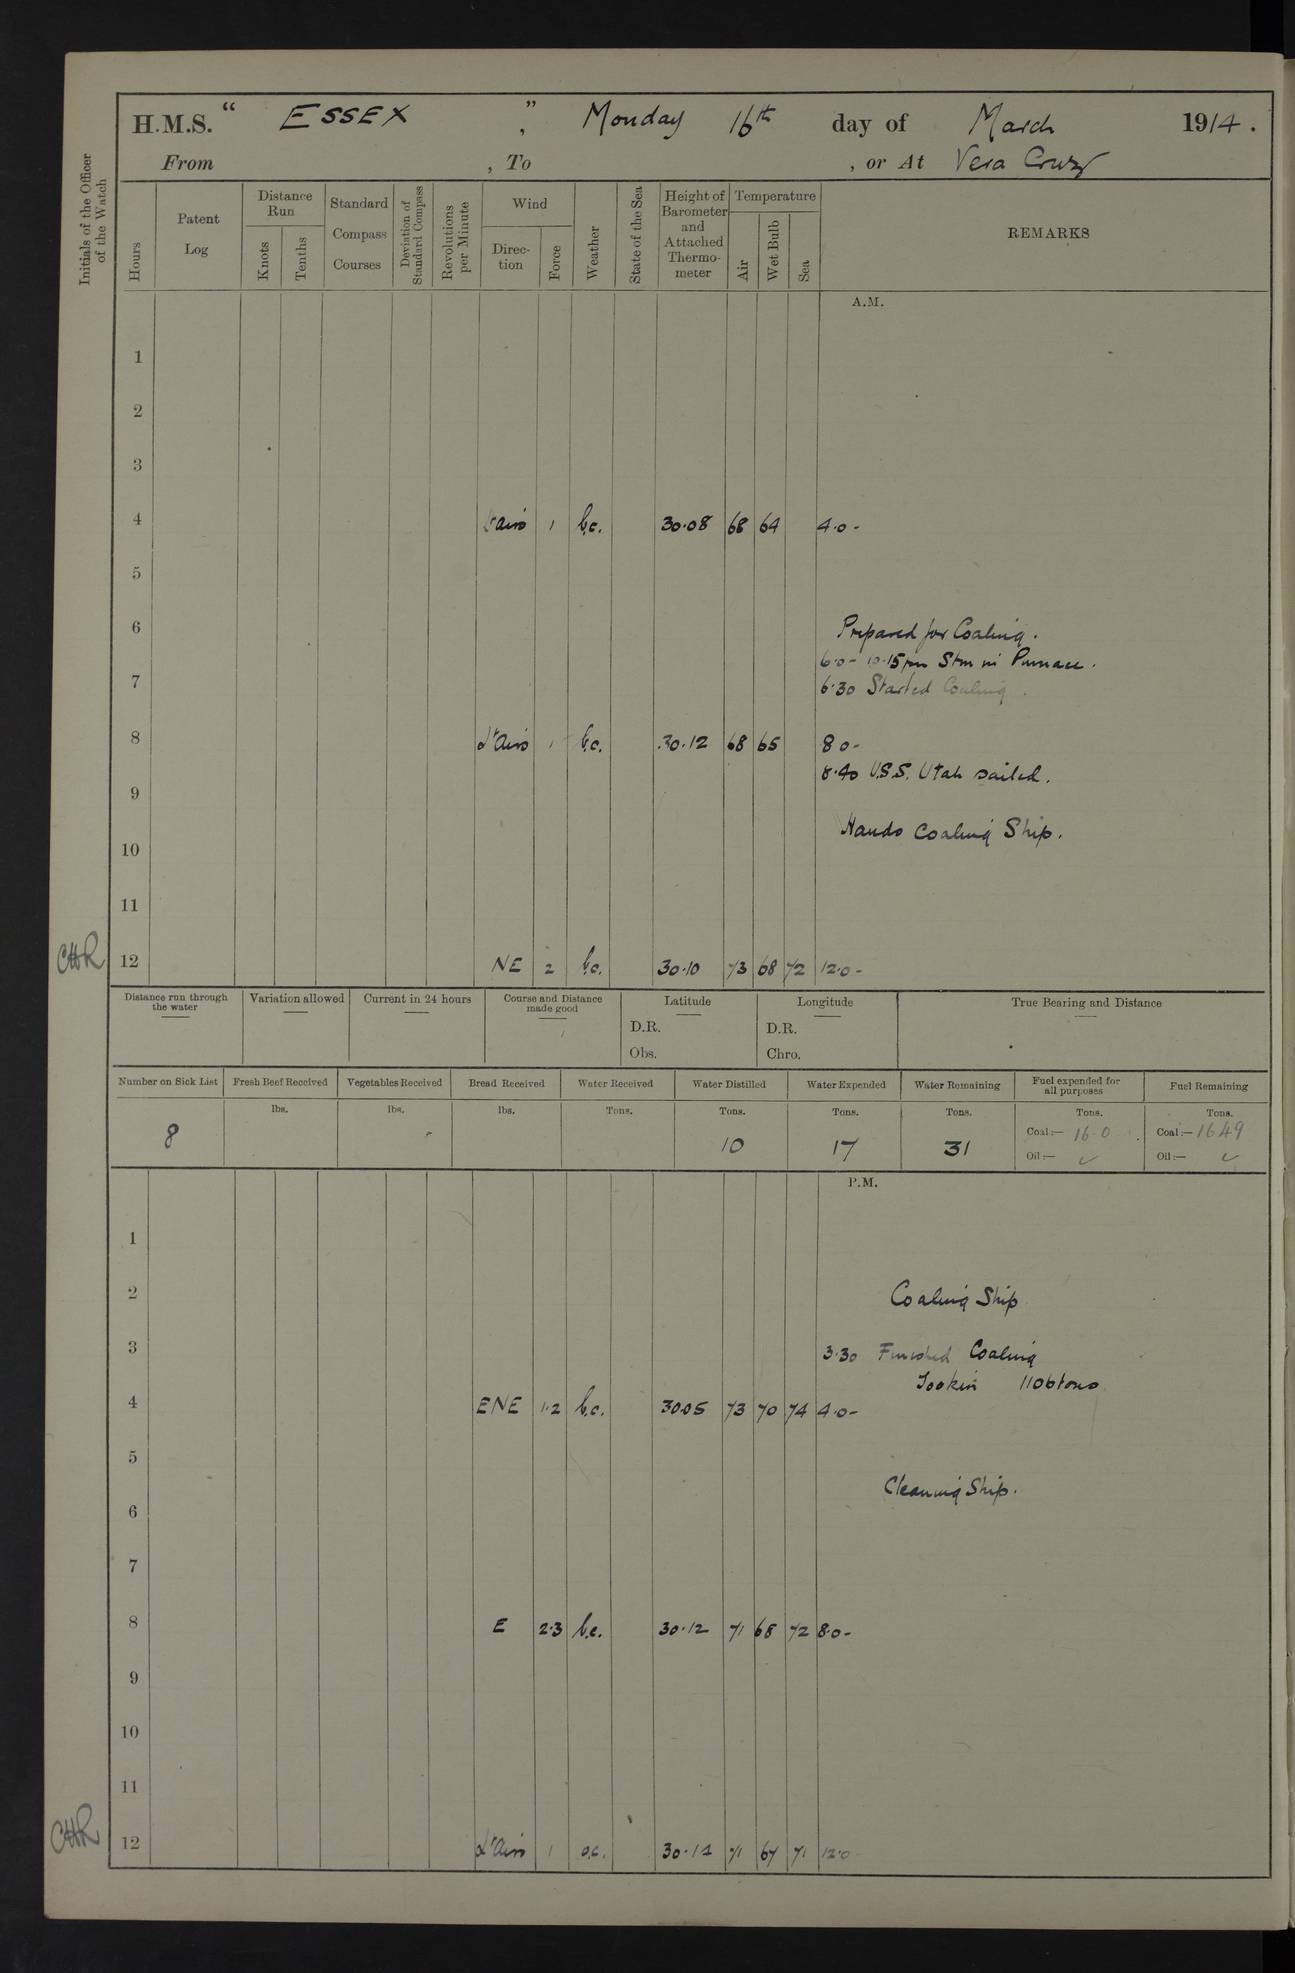 H.M.S. " ESSEX ", Monday 16th day of March 1914.
From , To , or At Vera Cruz
Initials of the Officer of the Watch
Hours
Patent Log
Distance Run
Knots
Tenths
Standard Compass Courses
Deviation of Standard Compass
Revolutions per Minute
Wind
Direc-tion
Force
Weather
State of the Sea
Height of Barometer and Attached Thermo-meter
Temperature
Air
Wet Bulb
Sea
REMARKS
A.M.
1
2
3
4 Lt airs 1 b.c. 30.08 68 64 4.0-
5
6 Prepared for Coaling.
6.0- 10.15pm Stm in Pinnace.
7 6.30 Started Coaling.
8 Lt airs 1 b.c. 30.12 68 65 8 0-
8.40 U.S.S. Utah sailed.
9
Hands Coaling Ship.
10
11
CHR 12 NE 2 b.c. 30.10 73 68 72 12.0-
Distance run through the water
Variation allowed
Current in 24 hours
Course and Distance made good
Latitude
D.R.
Obs.
Longitude
D.R.
Chro.
True Bearing and Distance
Number on Sick List Fresh Beef Received Vegetables Received Bread Received Water Received Water Distilled Water Expended Water Remaining Fuel expended for all purposes Fuel Remaining
lbs. lbs. lbs. Tons. Tons. Tons. Tons. Tons. Tons.
8 10 17 31 Coal:— 16.0 Coal:— 1649
Oil:— Oil:—
P.M.
1
2 Coaling Ship
3 3.30 Finished Coaling
Took in 1106 tons
4 ENE 1.2 b.c. 30.05 73 70 74 4.0-
5
Cleaning Ship.
6
7
8 E 2.3 b.c. 30.12 71 68 72 8.0-
9
10
11
CHR 12 Lt airs 1 b.c. 30.14 71 67 71 12.0